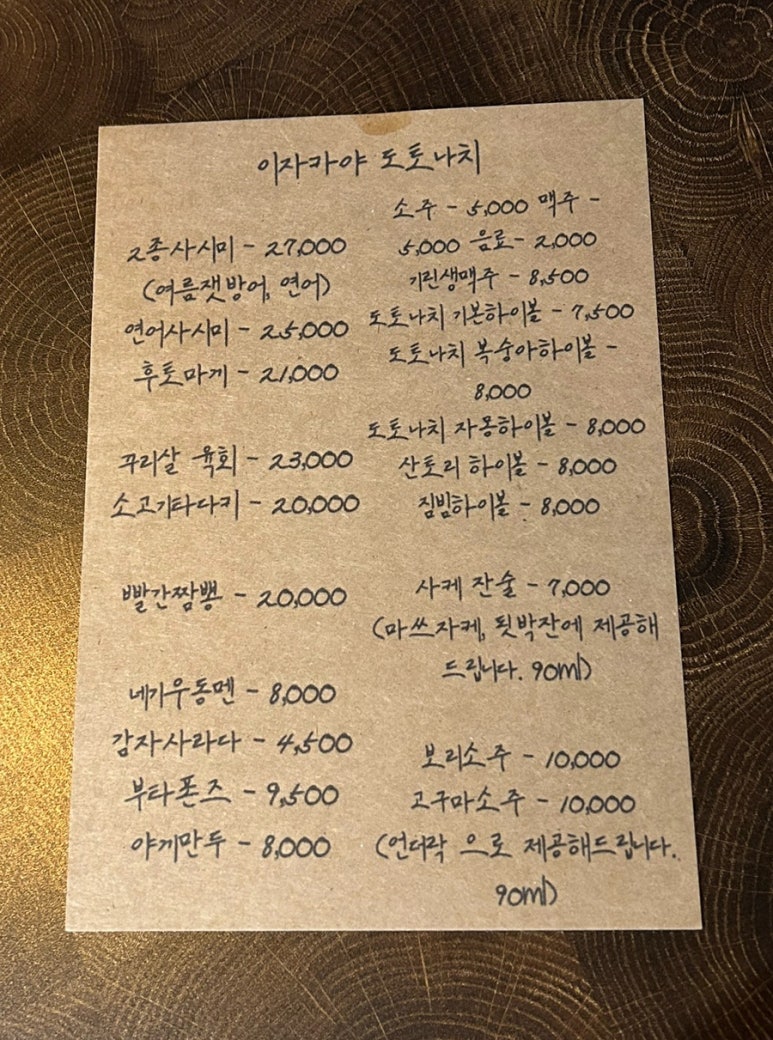 이자카야 도토나치
2종사시미 - 27,000
(여름잿방어, 연어)
연어사시미 - 25,000
후토마끼 - 21,000
꾸리살 육회 - 23,000
소고기타다키 - 20,000
빨간짬뽕 - 20,000
네기우동멘 - 8,000
감자사라다 - 4,500
부타폰즈 - 9,500
야끼만두 - 8,000
소주 - 5,000 맥주 -
5,000 음료- 2,000
기린생맥주 - 8,500
도토나치 기본하이볼 - 7,500
도토나치 복숭아하이볼 -
8,000
도토나치 자몽하이볼 - 8,000
산토리 하이볼 - 8,000
짐빔하이볼 - 8,000
사케 잔술 - 7,000
(마쓰자케, 됫박잔에 제공해
드립니다. 90ml)
보리소주 - 10,000
고구마소주 - 10,000
(언더락 으로 제공해드립니다.
90ml)